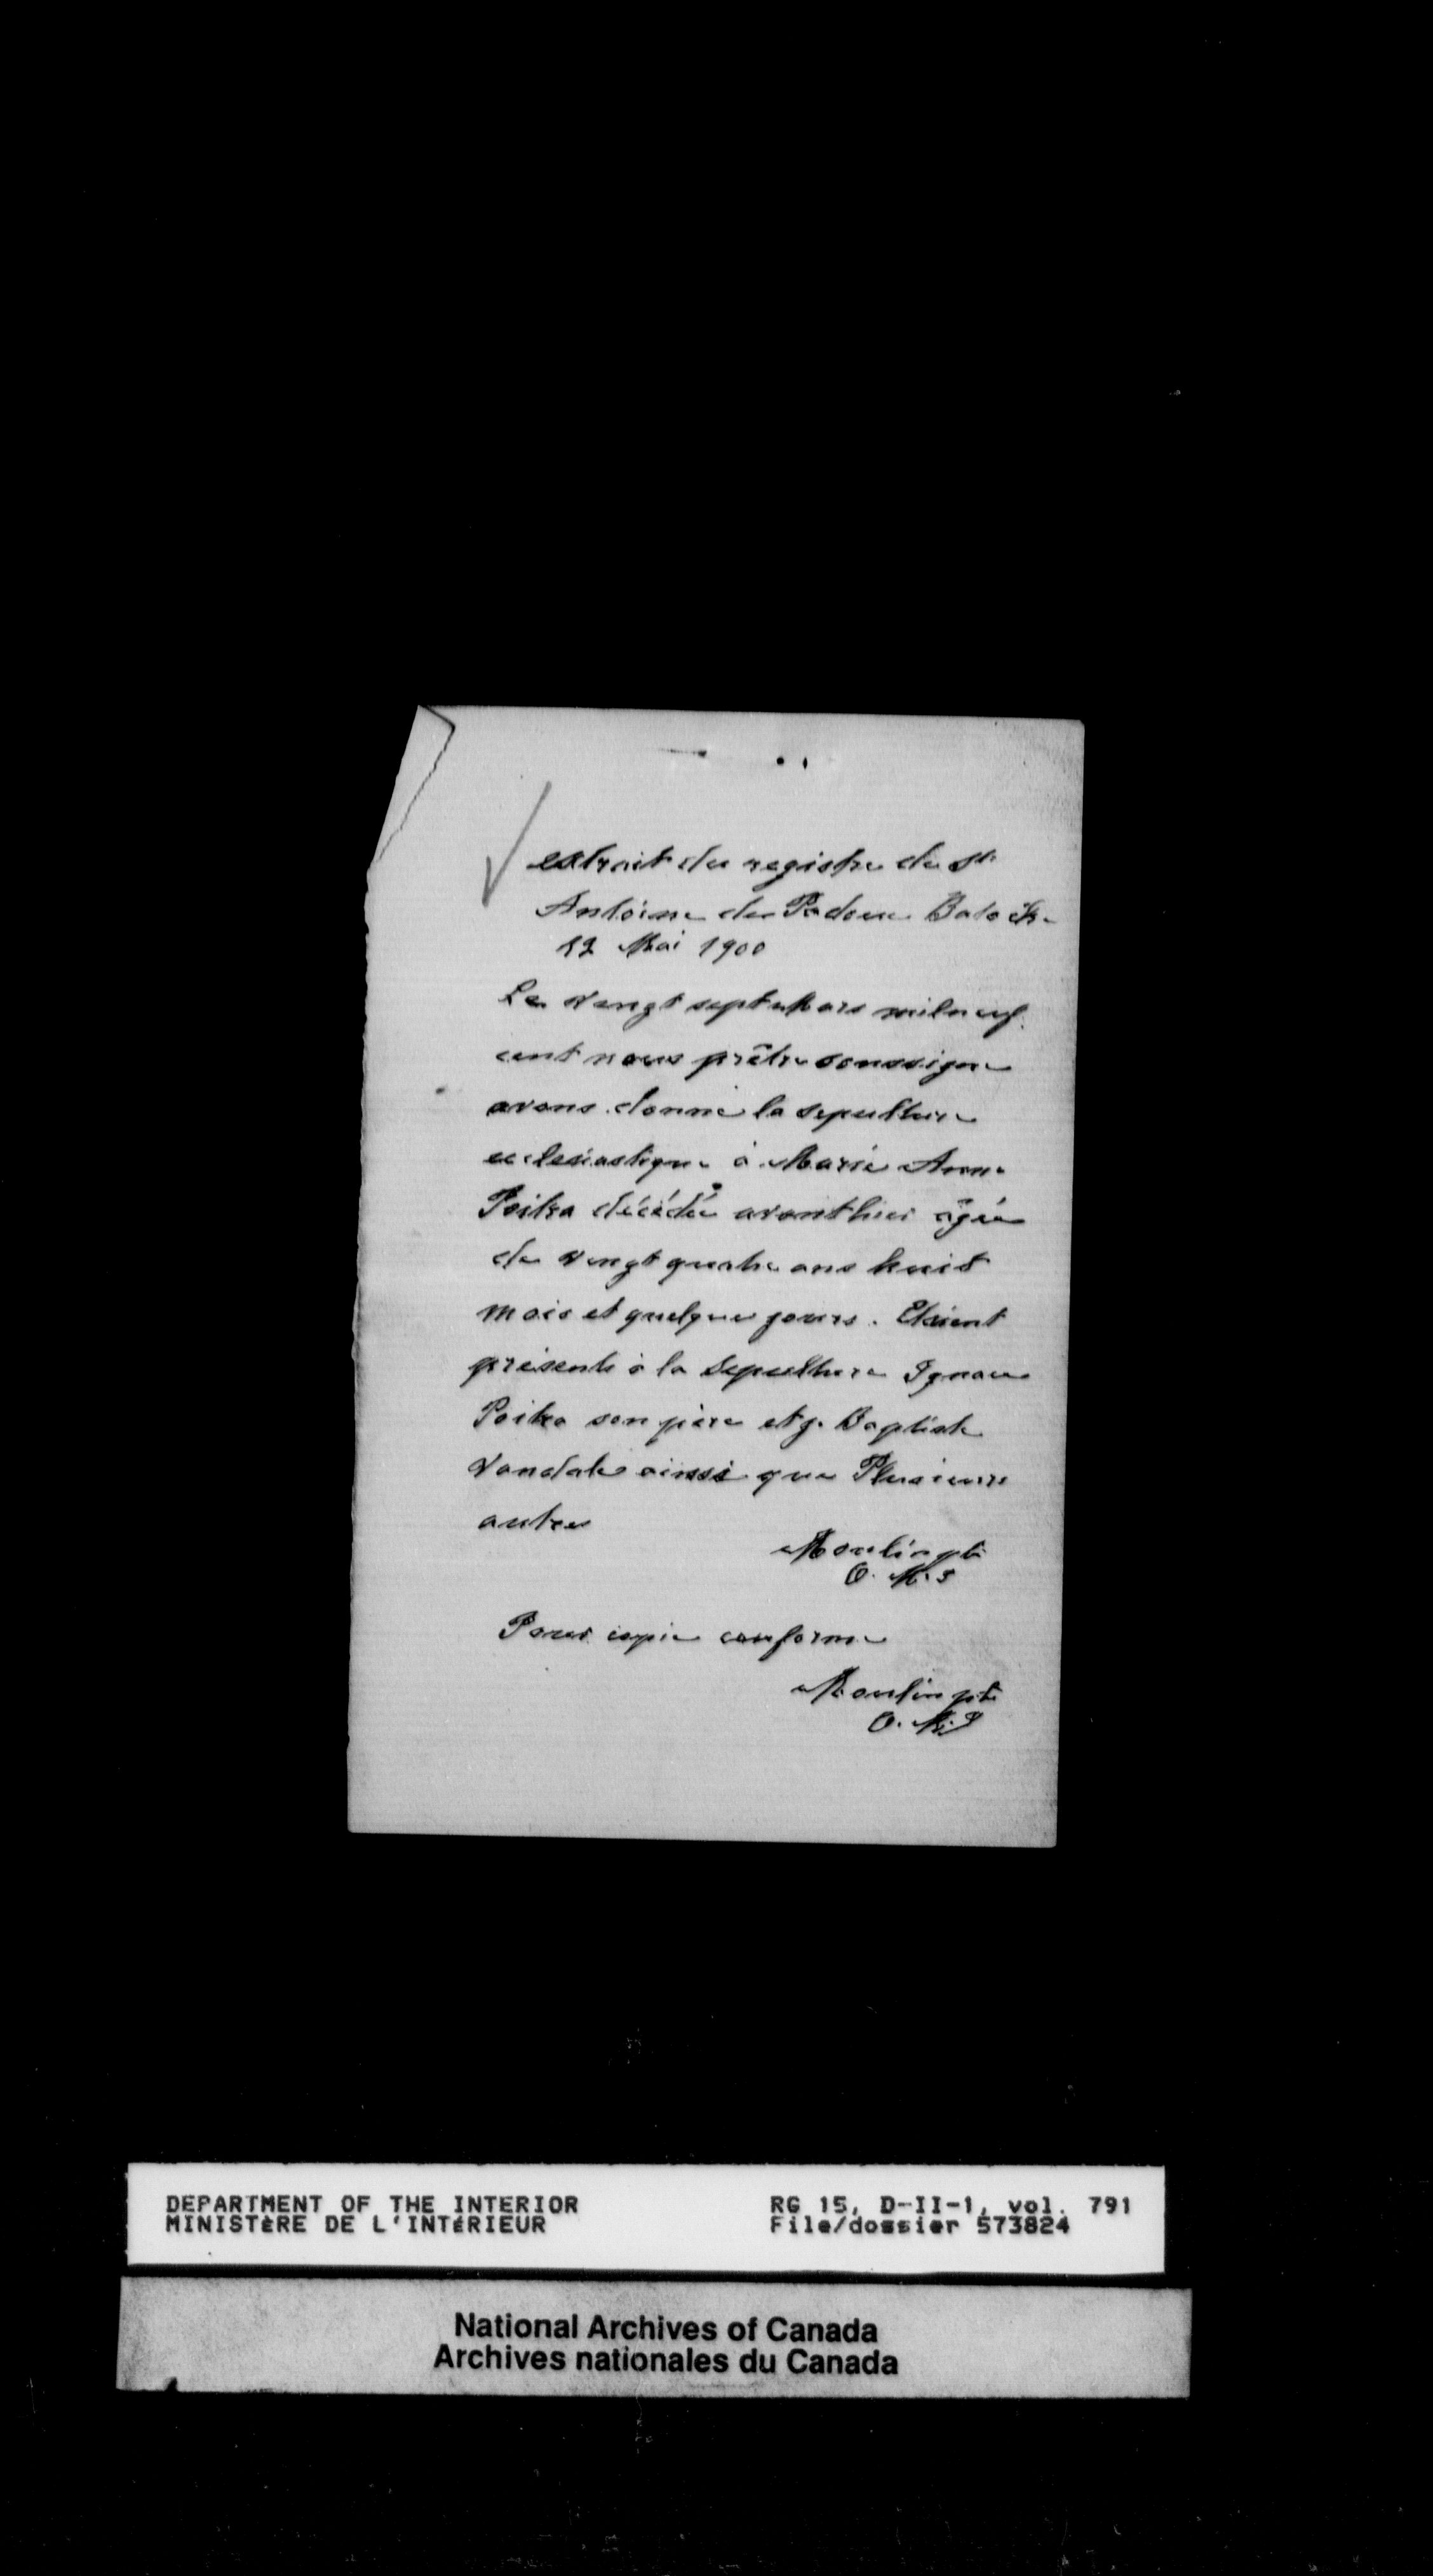 extrait du registre de St
Antoine de Padoue Batoche
12 Mai 1900
Le vingt sept Mars mil neuf
cent nous prêtre soussigne
avons donné la sepulture
ecclesiastique à Marie Anne
Poitra décédée avanthier âgée
de vingt quatre ans huit
mois et quelques jours. Etaient
présents à la sepulture Ignace
Poitra son père et J. Baptiste
Vandale ainsi que Plusieurs
autres
Moulin ptr
O. M. I
Pour copie conforme
Moulin ptr
O. M. I
DEPARTMENT OF THE INTERIOR
MINISTèRE DE L'INTéRIEUR
RG 15, D-II-1, vol. 791
File/dossier 573824
National Archives of Canada
Archives nationales du Canada